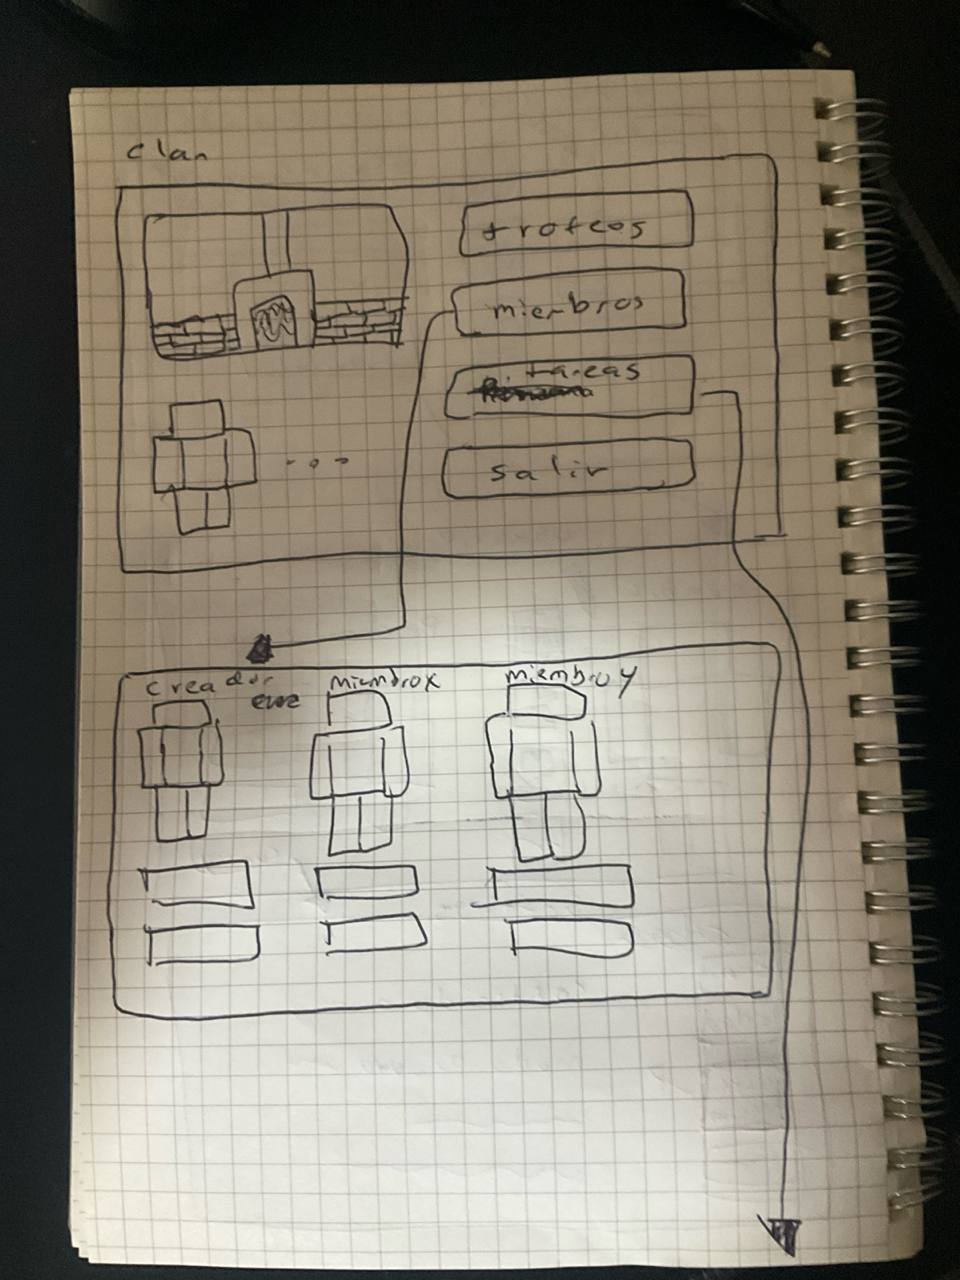 clan
trofeos
miembros
tareas
salir
creador
miembro x
miembro y